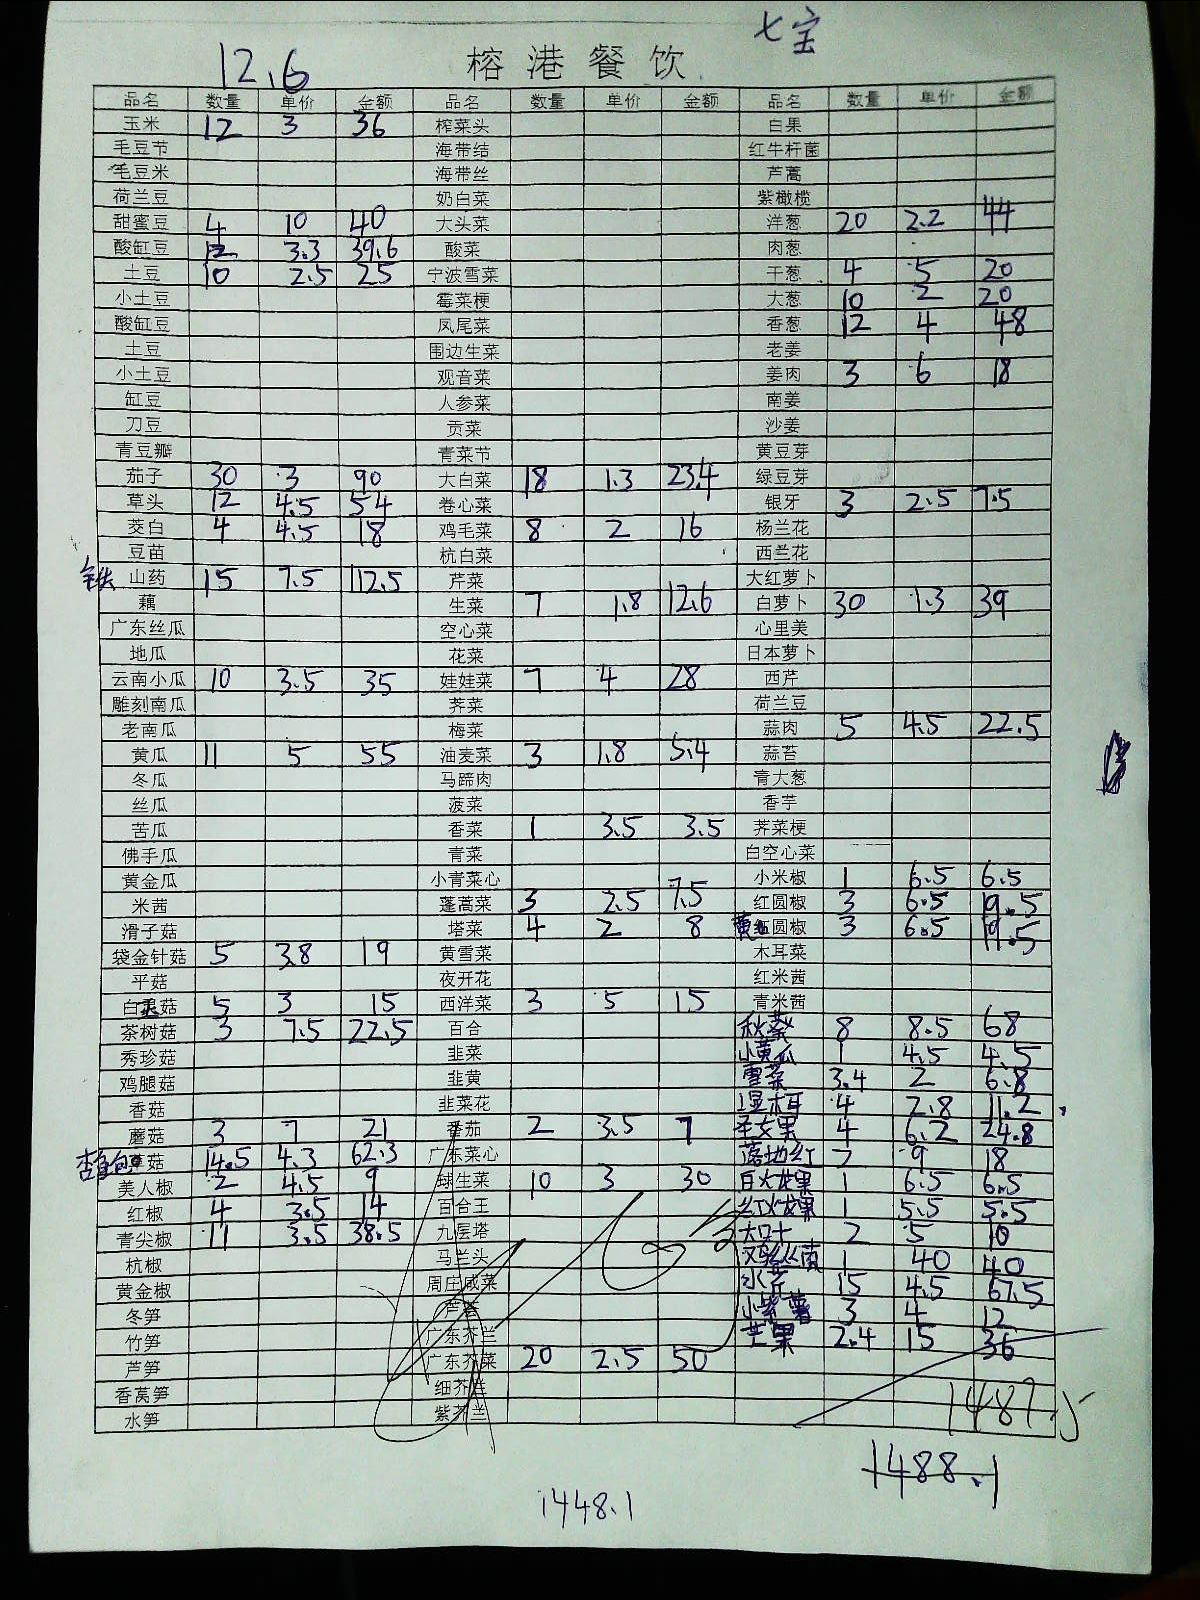 七宝
12.6
榕港餐饮
品名 数量 单价 金额 品名 数量 单价 金额 品名 数量 单价 金额
玉米 12 3 36 榨菜头 白果
毛豆节 海带结 红牛杆菌
毛豆米 海带丝 芦蒿
荷兰豆 奶白菜 紫橄榄
甜蜜豆 4 10 40 大头菜 洋葱 20 2.2 44
酸缸豆 12 3.3 39.6 酸菜 肉葱
土豆 10 2.5 25 宁波雪菜 干葱 4 5 20
小土豆 霉菜梗 大葱 10 2 20
酸缸豆 凤尾菜 香葱 12 4 48
土豆 围边生菜 老姜
小土豆 观音菜 姜肉 3 6 18
缸豆 人参菜 南姜
刀豆 贡菜 沙姜
青豆瓣 青菜节 黄豆芽
茄子 30 3 90 大白菜 18 1.3 23.4 绿豆芽
草头 12 4.5 54 卷心菜 银牙 3 2.5 7.5
茭白 4 4.5 18 鸡毛菜 8 2 16 杨兰花
豆苗 杭白菜 西兰花
铁山药 15 7.5 112.5 芹菜 大红萝卜
藕 生菜 7 1.8 12.6 白萝卜 30 1.3 39
广东丝瓜 空心菜 心里美
地瓜 花菜 日本萝卜
云南小瓜 10 3.5 35 娃娃菜 7 4 28 西芹
雕刻南瓜 荠菜 荷兰豆
老南瓜 梅菜 蒜肉 5 4.5 22.5
黄瓜 11 5 55 油麦菜 3 1.8 5.4 蒜苔
冬瓜 马蹄肉 青大葱
丝瓜 菠菜 香芋
苦瓜 香菜 1 3.5 3.5 荠菜梗
佛手瓜 青菜 白空心菜
黄金瓜 小青菜心 小米椒 1 6.5 6.5
米茜 蓬蒿菜 3 2.5 7.5 红圆椒 3 6.5 19.5
滑子菇 塔菜 4 2 8 黄圆椒 3 6.5 19.5
袋金针菇 5 3.8 19 黄雪菜 木耳菜
平菇 夜开花 红米茜
白灵菇 5 3 15 西洋菜 3 5 15 青米茜
茶树菇 3 7.5 22.5 百合 秋葵 8 8.5 68
秀珍菇 韭菜 小黄瓜 1 4.5 4.5
鸡腿菇 韭黄 雪菜 3.4 2 6.8
香菇 韭菜花 湿木耳 4 2.8 11.2
蘑菇 3 7 21 番茄 2 3.5 7 圣女果 4 6.2 24.8
杏鲍菇 14.5 4.3 62.3 广东菜心 落地红 2 9 18
美人椒 2 4.5 9 球生菜 10 3 30 白火龙果 1 6.5 6.5
红椒 4 3.5 14 百合王 红火龙果 1 5.5 5.5
青尖椒 11 3.5 38.5 九层塔 大口十 2 5 10
杭椒 马兰头 鸡丝菌 1 40 40
黄金椒 周庄咸菜 水芹 15 4.5 67.5
冬笋 芦香 小紫薯 3 4 12
竹笋 广东芥兰 芒果 2.4 15 36
芦笋 广东芥菜 20 2.5 50
香莴笋 细芥兰
水笋 紫芥兰
1487.5
1488.1
1448.1